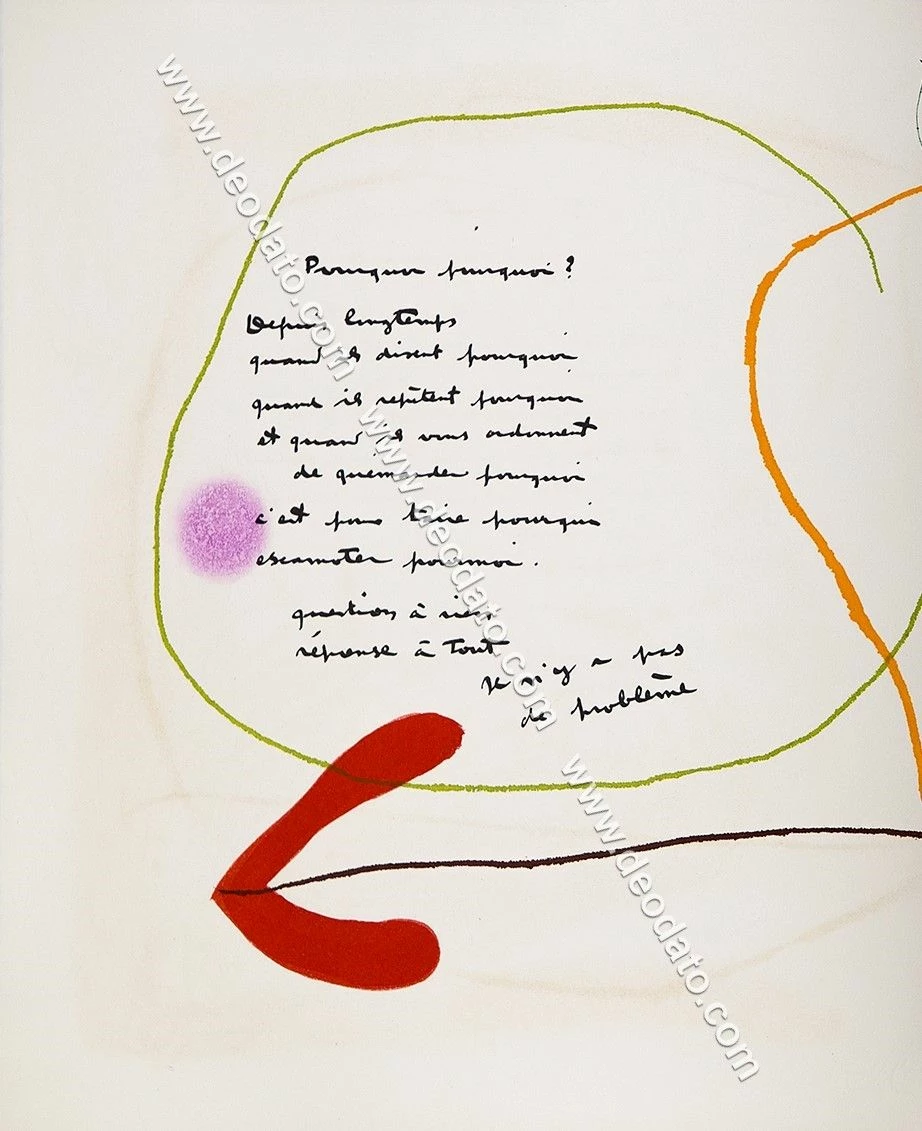 Pourquoi pourquoi ?
Depuis longtemps
quand ils disent pourquoi
quand ils répètent pourquoi
et quand ils vous ordonnent
de quémander pourquoi
c'est pour taire pourqui
escamoter pourmoi.
question à rien
réponse à Tout
Il n'y a pas
de problème
www.deodato.com
www.deodato.com
www.deodato.com